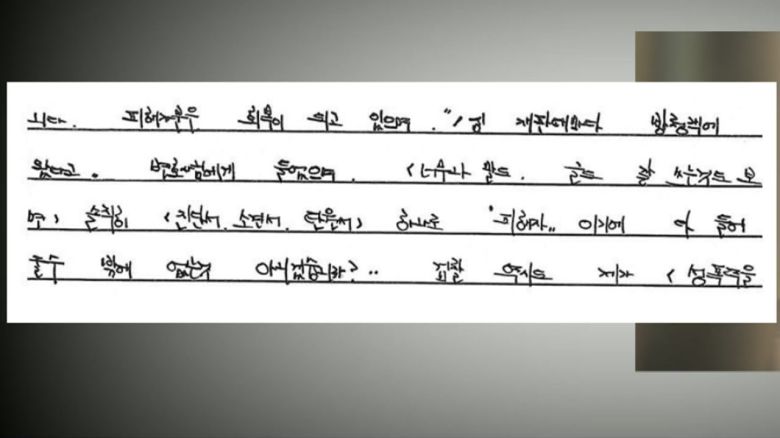 니다. 피해자분은 회복이 되고 있으며.", 첫 재판때부터 방청석에
왔다고. 변호사님에게 들었으며. <너무나 말도. 글도 잘 쓰는것도 보
면> 솔직히 <진단서. 소견서. 탄원서> 하나로 "피해자" 이기에 다 들어
줄수 밖에 없는것 아닙니까?.. 검찰 역시도 제가 <성폭력을